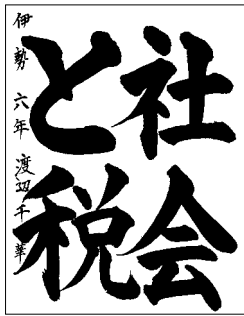 社会
と税
伊勢 六年 渡辺千華